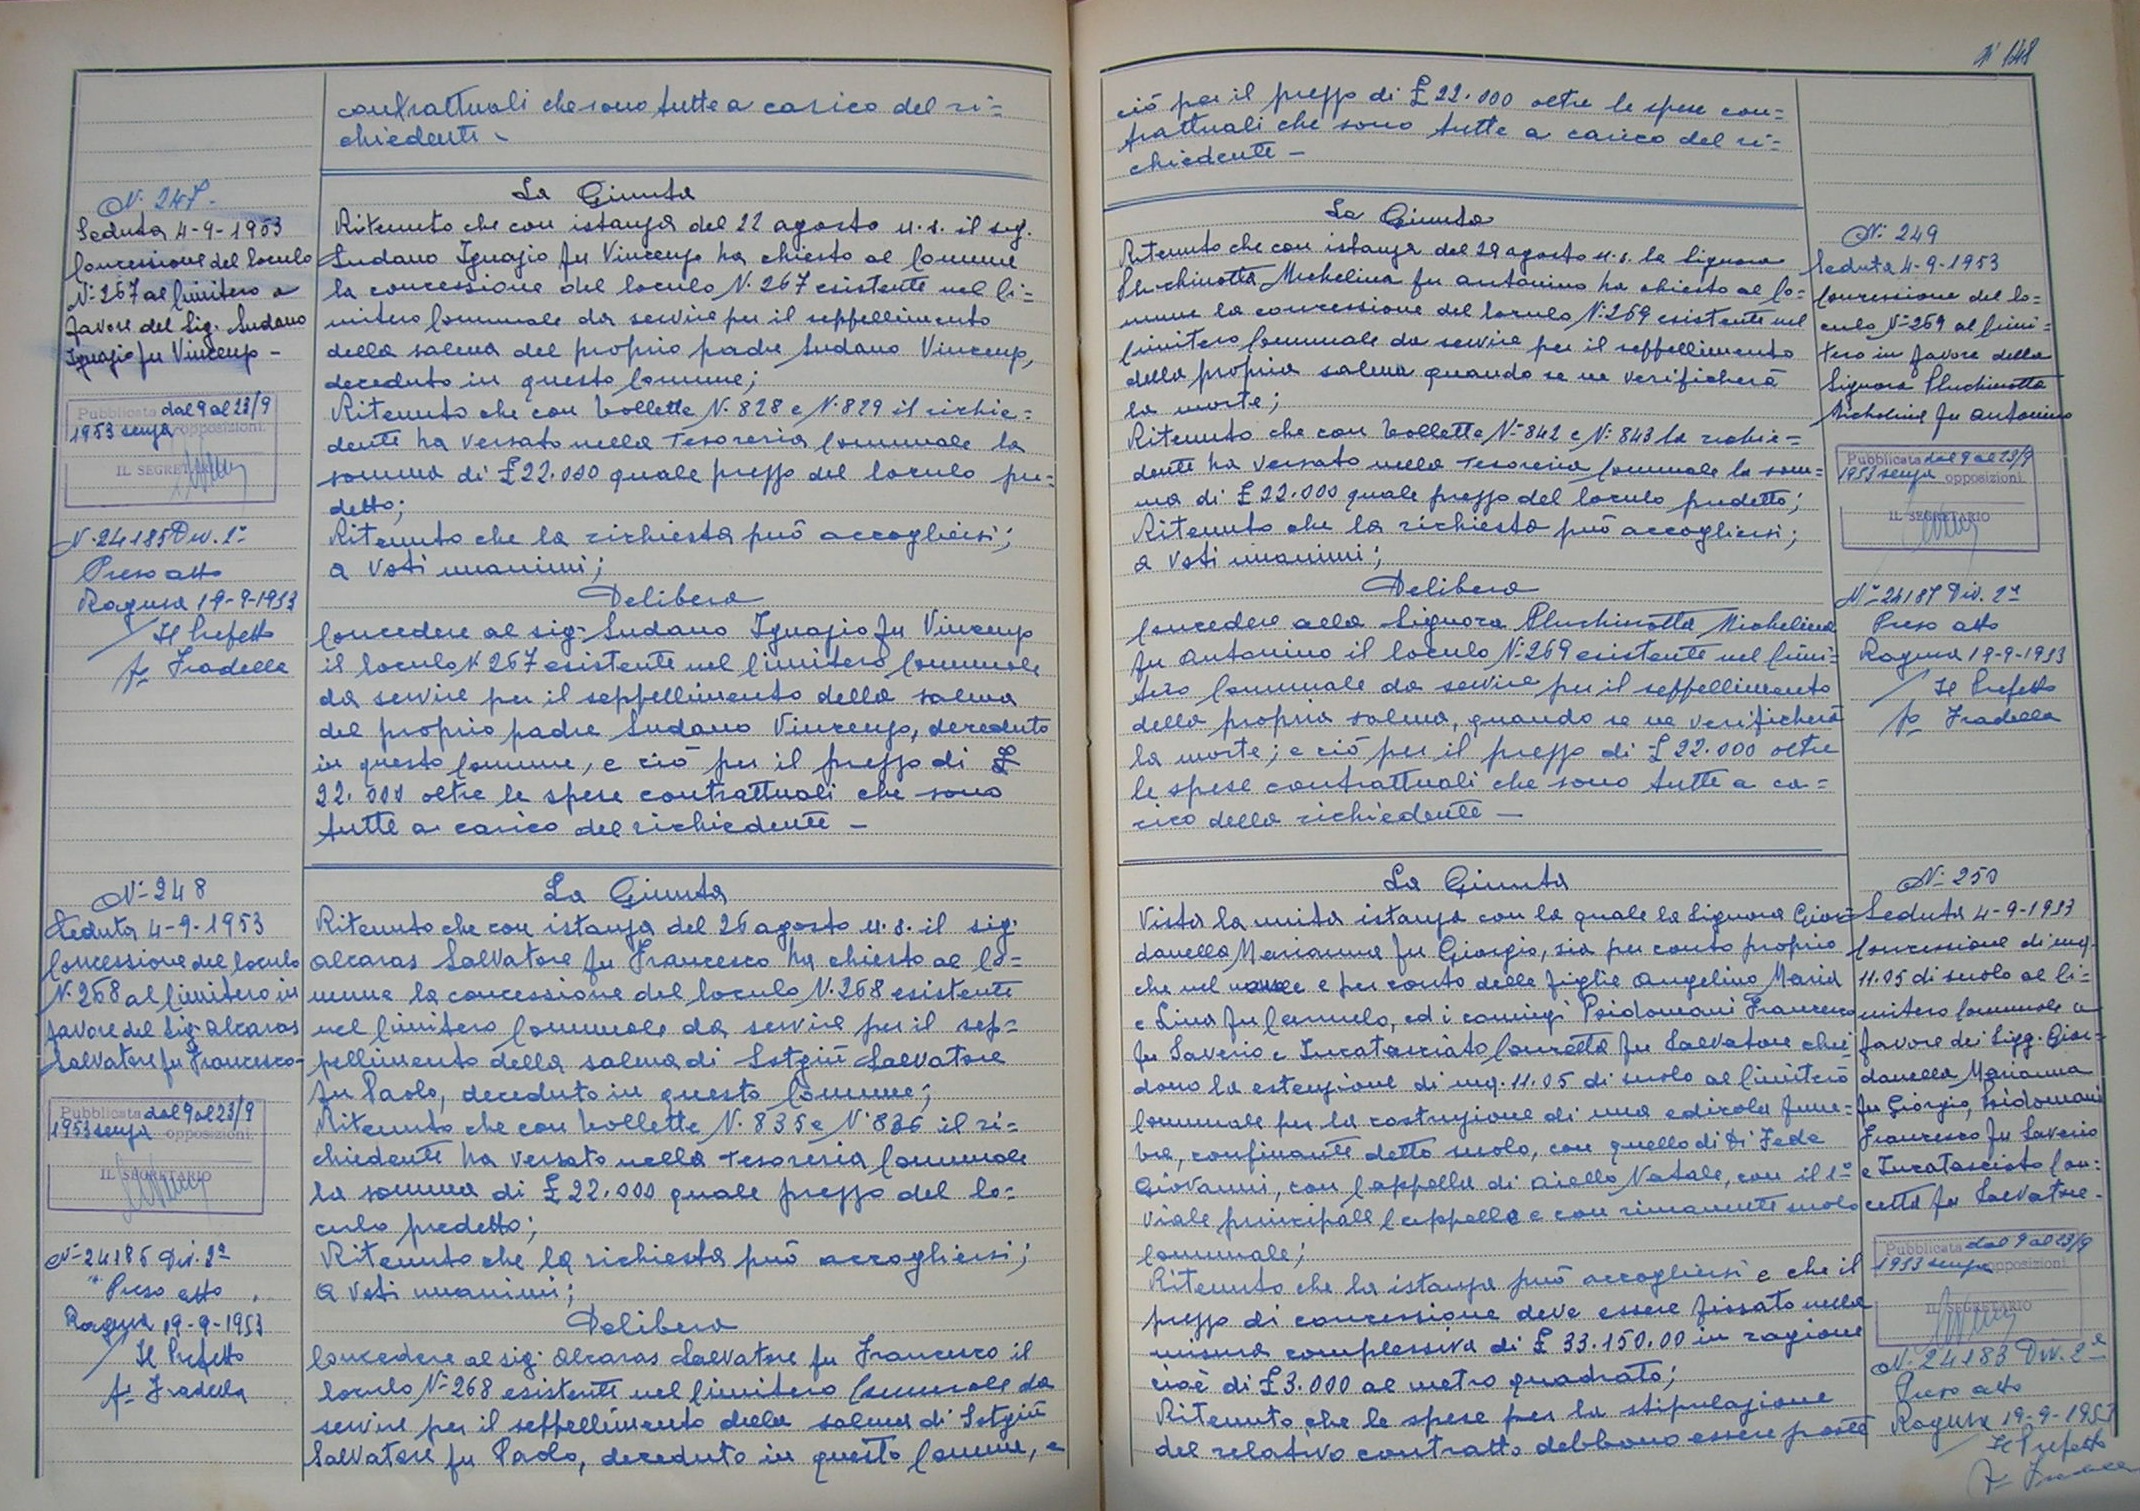 contrattuali che sono tutte a carico del ri=
chiedente -
N. 247.
Seduta 4-9-1953
Concessione del loculo
N. 267 al Cimitero a
favore del Sig. Sudano
Ignazio fu Vincenzo -
Pubblicata dal 9 al 23/9
1953 senza opposizioni
IL SEGRETARIO
N. 24185 Div. 2ª
Preso atto
Ragusa 19-9-1953
Il Prefetto
fto Fradella
La Giunta
Ritenuto che con istanza del 22 agosto u.s. il sig.
Sudano Ignazio fu Vincenzo ha chiesto al Comune
la concessione del loculo N. 267 esistente nel Ci=
mitero Comunale da servire per il seppellimento
della salma del proprio padre Sudano Vincenzo,
deceduto in questo Comune;
Ritenuto che con bollette N. 828 e N. 829 il richie=
dente ha versato nella Tesoreria Comunale la
somma di £ 22.000 quale prezzo del loculo pre=
detto;
Ritenuto che la richiesta può accogliersi;
a voti unanimi;
Delibera
Concedere al sig. Sudano Ignazio fu Vincenzo
il loculo N 267 esistente nel Cimitero Comunale
da servire per il seppellimento della salma
del proprio padre Sudano Vincenzo, deceduto
in questo Comune, e ciò per il prezzo di £
22.000 oltre le spese contrattuali che sono
tutte a carico del richiedente -
N. 248
Seduta 4-9-1953
Concessione del loculo
N. 268 al Cimitero in
favore del Sig. Alcaras
Salvatore fu Francesco -
Pubblicata dal 9 al 23/9
1953 senza opposizioni
IL SEGRETARIO
N. 24186 Div. 2ª
Preso atto
Ragusa 19-9-1953
Il Prefetto
fto Fradella
La Giunta
Ritenuto che con istanza del 26 agosto u.s. il sig.
Alcaras Salvatore fu Francesco ha chiesto al Co=
mune la concessione del loculo N. 268 esistente
nel Cimitero Comunale da servire per il sep=
pellimento della salma di Sotgiù Salvatore
fu Paolo, deceduto in questo Comune;
Ritenuto che con bollette N. 835 e N. 836 il ri=
chiedente ha versato nella Tesoreria Comunale
la somma di £ 22.000 quale prezzo del lo=
culo predetto;
Ritenuto che la richiesta può accogliersi;
a voti unanimi;
Delibera
Concedere al sig. Alcaras Salvatore fu Francesco il
loculo N. 268 esistente nel Cimitero Comunale da
servire per il seppellimento della salma di Sotgiù
Salvatore fu Paolo, deceduto in questo Comune, e
N 148
ciò per il prezzo di £ 22.000 oltre le spese con=
trattuali che sono tutte a carico del ri=
chiedente -
La Giunta
Ritenuto che con istanza del 29 agosto u.s. la Signora
Pluchinotta Michelina fu Antonino ha chiesto al Co=
mune la concessione del loculo N. 269 esistente nel
Cimitero Comunale da servire per il seppellimento
della propria salma quando se ne verificherà
la morte;
Ritenuto che con bollette N. 842 e N. 843 la richie=
dente ha versato nella Tesoreria Comunale la som=
ma di £ 22.000 quale prezzo del loculo predetto;
Ritenuto che la richiesta può accogliersi;
a voti unanimi;
Delibera
Concedere alla Signora Pluchinotta Michelina
fu Antonino il loculo N. 269 esistente nel Cimi=
tero Comunale da servire per il seppellimento
della propria salma, quando se ne verificherà
la morte; e ciò per il prezzo di £ 22.000 oltre
le spese contrattuali che sono tutte a ca=
rico della richiedente -
N. 249
Seduta 4-9-1953
Concessione del lo=
culo N. 269 al Cimi=
tero in favore della
Signora Pluchinotta
Michelina fu Antonino
Pubblicata dal 9 al 23/9
1953 senza opposizioni
IL SEGRETARIO
N. 24187 Div. 2ª
Preso atto
Ragusa 19-9-1953
Il Prefetto
fto Fradella
La Giunta
Vista la unita istanza con la quale la Signora Gior=
danella Marianna fu Giorgio, sia per conto proprio
che nel nome e per conto delle figlie Angelino Maria
e Lina fu Carmelo, ed i coniugi Psidomani Francesco
fu Saverio e Incatasciato Concetta fu Salvatore chie=
dono la estenzione di mq. 11.05 di suolo al Cimitero
Comunale per la costruzione di una edicola fune=
bre, confinante detto suolo, con quello di Di Fede
Giovanni, con Cappella di Aiello Natale, con il 1º
viale principale Cappelle e con rimanente suolo
Comunale;
Ritenuto che la istanza può accogliersi e che il
prezzo di concessione deve essere fissato nella
misura complessiva di £ 33.150.00 in ragione
cioè di £ 3.000 al metro quadrato;
Ritenuto che le spese per la stipulazione
del relativo contratto debbono essere poste
N. 250
Seduta 4-9-1953
Concessione di mq.
11.05 di suolo al Ci=
mitero Comunale a
favore dei Sigg. Gior=
danella Marianna
fu Giorgio, Psidomani
Francesco fu Saverio
e Incatasciato Con=
cetta fu Salvatore -
Pubblicata dal 9 al 23/9
1953 senza opposizioni
IL SEGRETARIO
N. 24183 Div. 2ª
Preso atto
Ragusa 19-9-1953
Il Prefetto
fto Fradella